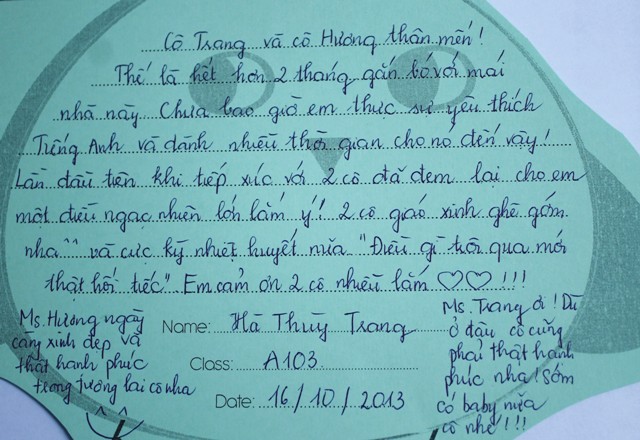 Cô Trang và cô Hương thân mến!
Thế là hết hơn 2 tháng gắn bó với mái
nhà này. Chưa bao giờ em thực sự yêu thích
Tiếng Anh và dành nhiều thời gian cho nó đến vậy!
Lần đầu tiên khi tiếp xúc với 2 cô đã đem lại cho em
một điều ngạc nhiên lớn lắm ý! 2 cô giáo xinh ghê gớm
nha^^ và cực kỳ nhiệt huyết nữa "Điều gì trôi qua mới
thật hối tiếc". Em cảm ơn 2 cô nhiều lắm ♡♡!!!
Ms. Hương ngày
càng xinh đẹp và
thật hạnh phúc
trong tương lai cô nha
Name: Hà Thuỳ Trang
Class: A103
Date: 16/10/2013
Ms. Trang ơi! Dù
ở đâu cô cũng
phải thật hạnh
phúc nha! Sớm
có baby nữa
cô nhé!!!